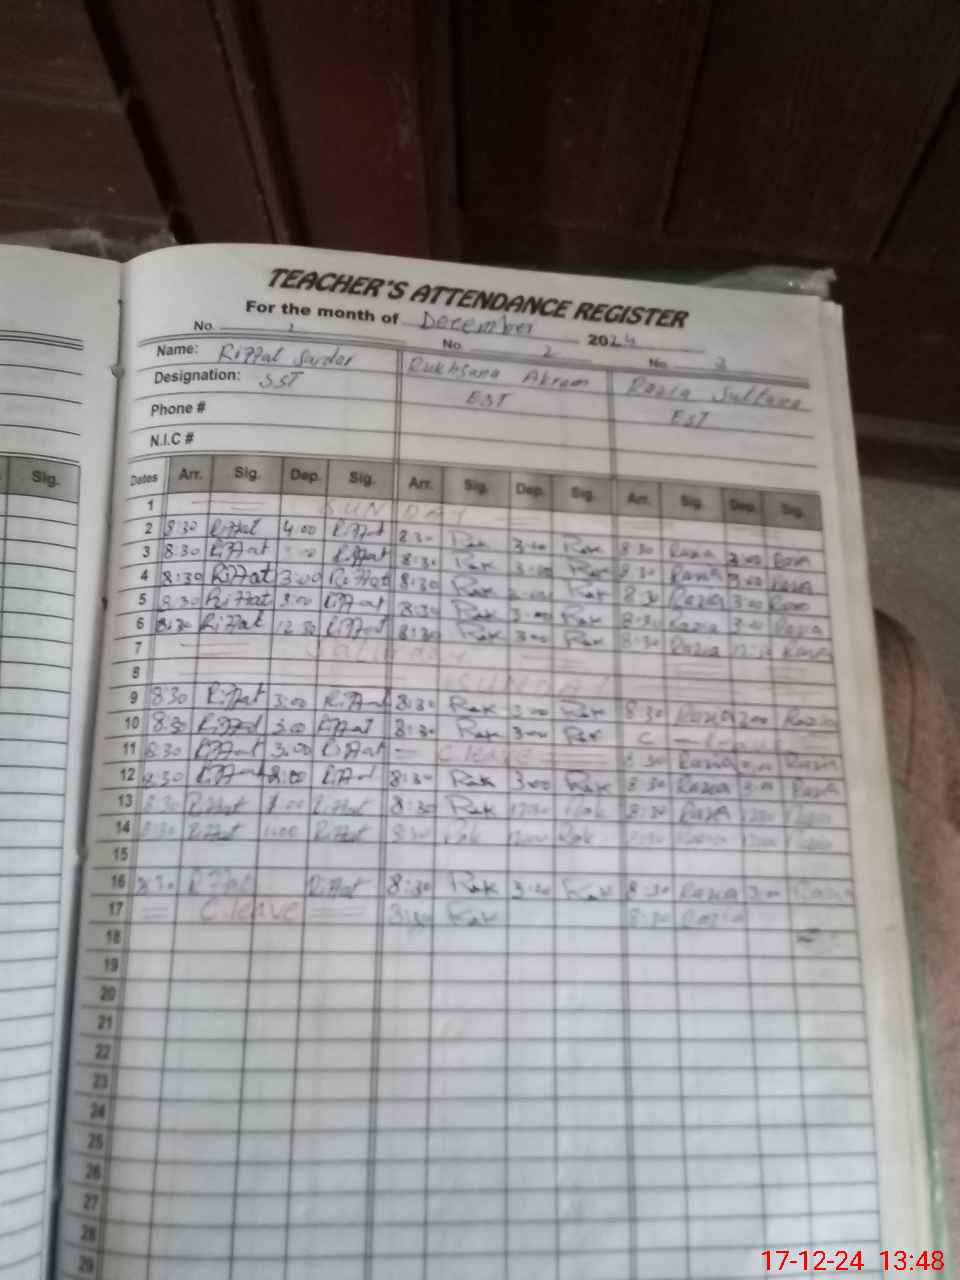 TEACHER'S ATTENDANCE REGISTER
For the month of December 2024
No. 1 No. 2 No. 3
Name: Riffat Sardar Rukhsana Akram Razia Sultana
Designation: SST EST EST
Phone #
N.I.C #
Sig.
Dates Arr. Sig. Dep. Sig. Arr. Sig. Dep. Sig. Arr. Sig. Dep. Sig.
1 SUNDAY
2 8:30 Riffat 4:00 Riffat 8:30 Rak 3:00 Rak 8:30 Razia 3:00 Razia
3 8:30 Riffat Riffat 8:30 Rak 3:00 Rak 8:30 Razia 3:00 Razia
4 8:30 Riffat 3:00 Riffat 8:30 Rak Rak 8:30 Razia 3:00 Razia
5 8:30 Riffat 3:00 Riffat 8:30 Rak 3:00 Rak 8:30 Razia 3:00 Razia
6 8:30 Riffat 12:30 Riffat 8:30 Rak 3:00 Rak 8:30 Razia Razia
7
8 SUNDAY
9 8:30 Riffat 3:00 Riffat 8:30 Rak 3:00 Rak 8:30 Razia 3:00 Razia
10 8:30 Riffat 3:00 Riffat 8:30 Rak 3:00 Rak C leave
11 8:30 Riffat 3:00 Riffat C leave 8:30 Razia Razia
12 8:30 Riffat 3:00 Riffat 8:30 Rak 3:00 Rak 8:30 Razia 3:00 Razia
13 8:30 Riffat 1:00 Riffat 8:30 Rak Rak 8:30 Razia Razia
14 8:30 Riffat 1:00 Riffat 8:30 Rak Rak 8:30 Razia Razia
15
16 8:30 Riffat Riffat 8:30 Rak 3:00 Rak 8:30 Razia 3:00 Razia
17 C leave 8:30 Rak 8:30 Razia
18
19
20
21
22
23
24
25
26
27
28
29
17-12-24 13:48